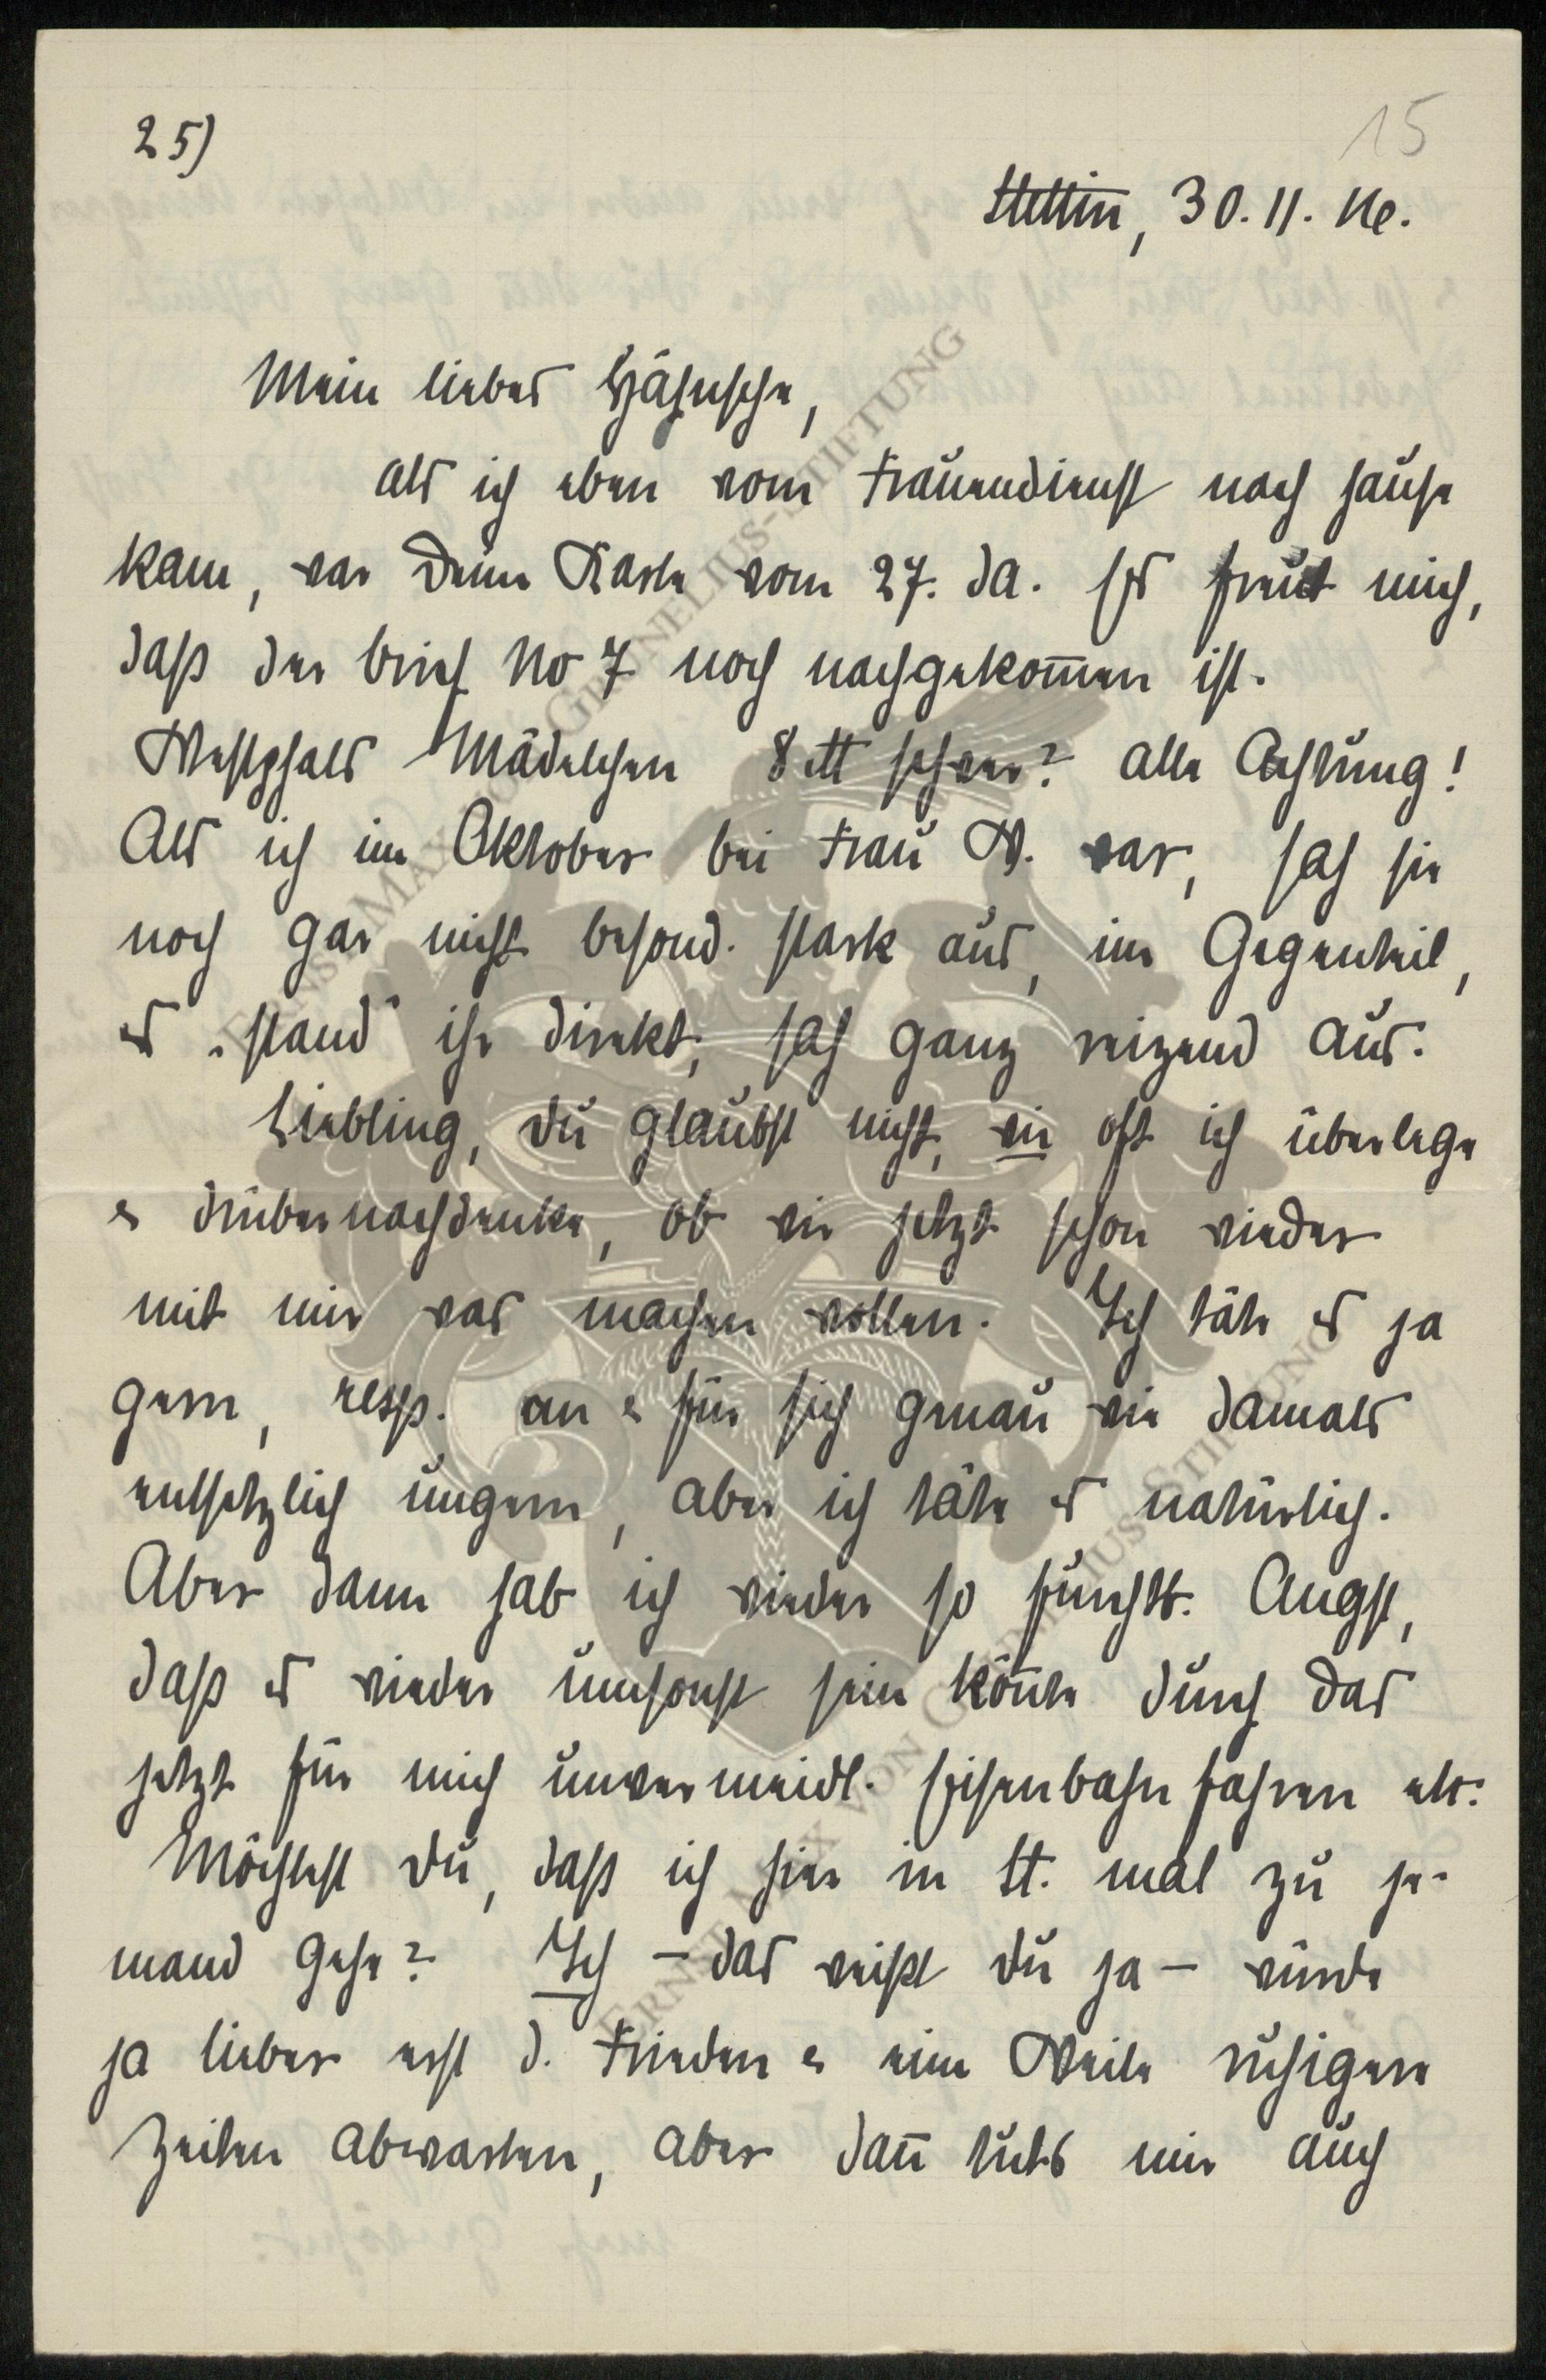 25)
15
Stettin, 30.11.16.
Mein liebes Hähnsche,
als ich eben vom Frauendienst nach hause
kam, war Deine Karte vom 27. da. Es freut mich,
daß der brief No 7 noch nachgekom̄en ist.
Westphals Mädelchen 8 ℔ schwer? alle Achtung!
Als ich im Oktober bei Frau W. war, sah sie
noch gar nicht besond. stark aus, im Gegenteil,
es „stand" ihr direkt, sah ganz reizend aus.
Liebling, Du glaubst nicht, wie oft ich überlege
& drüber nachdenke, ob wir jetzt schon wieder
mit mir was machen wollen. Ich täte es ja
gern, resp. an & für sich genau wie damals
entsetzlich ungern, aber ich täte es natürlich.
Aber dann hab ich wieder so fürchtb. Angst,
daß es wieder umsonst sein kön̄te durch das
jetzt für mich unvermeidl. Eisenbahnfahren etc.
Möchtest Du, daß ich hier in St. mal zu je-
mand gehe? Ich – das weißt Du ja – würde
ja lieber erst d. Frieden & eine Weile ruhigere
Zeiten abwarten, aber dan̄ tuts mir auch
ERNST-MAX VON GERNELIUS-STIFTUNG
ERNST-MAX VON GERNELIUS-STIFTUNG